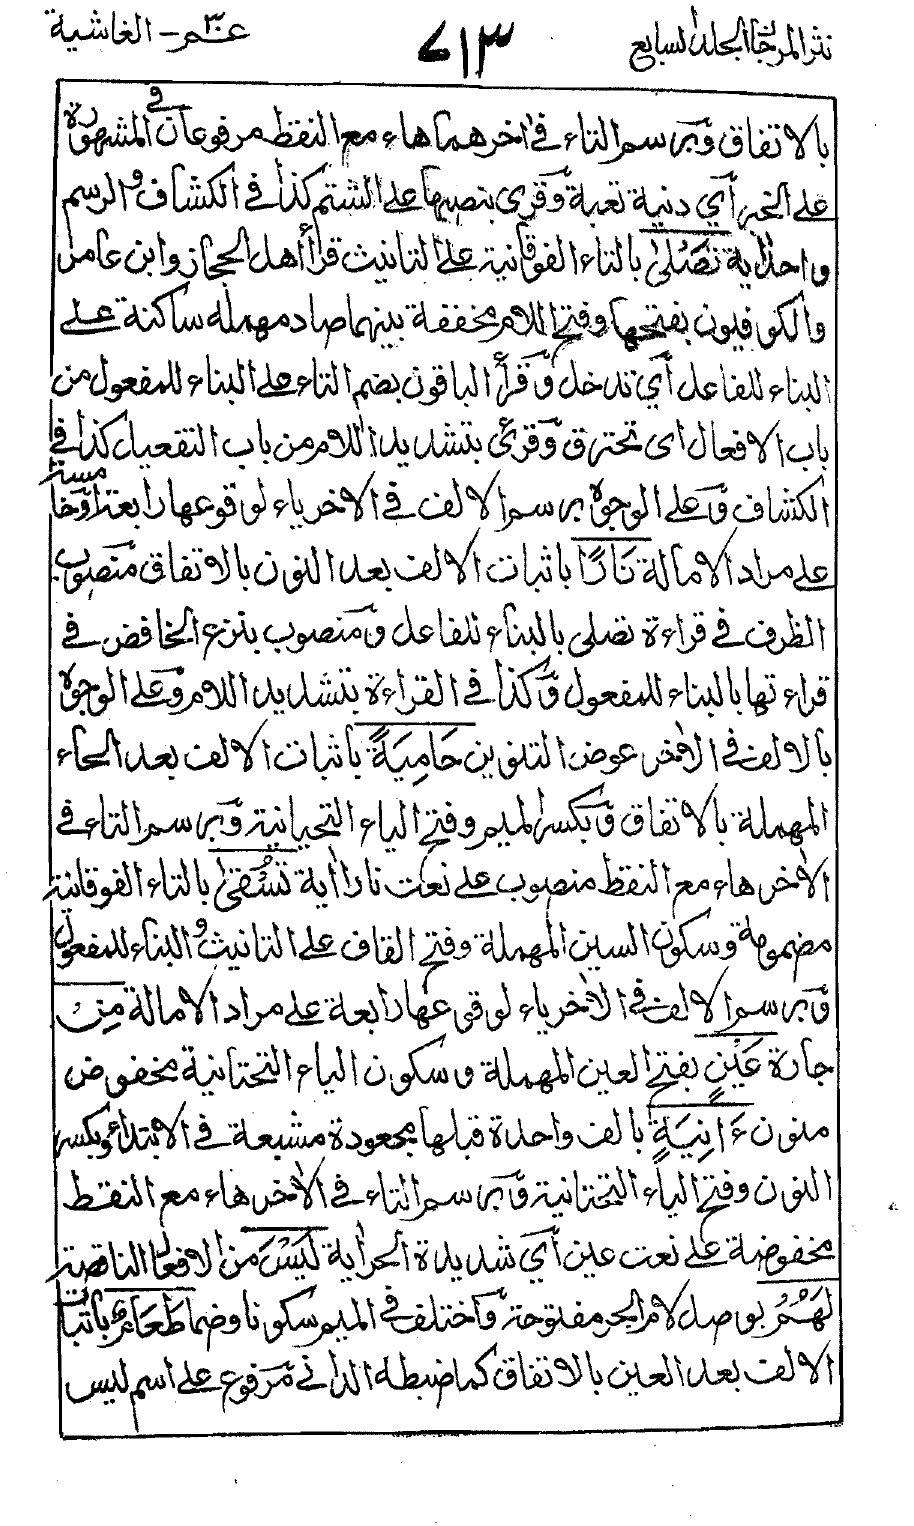 نثر المرجان المجلد السابع
٧١٣
عم ٣٠ - الغاشية
بالاتفاق وبرسم التاء في اٰخرهما هاء مع النقط مرفوعان في المشهورة
على الخبر أي دنية تعبة وقرئ بنصبها على الشتم كذا في الكشاف والرسم
واحد اٰية تَصْلىٰ بالتاء الفوقانية على التانيث قرأ أهل الحجاز وابن عامر
والكوفيون بفتحها وفتح اللام مخففة بينهما صاد مهملة ساكنة على
البناء للفاعل أي تدخل وقرأ الباقون بضم التاء على البناء للمفعول من
باب الافعال اى تحترق وقرئ بتشديد اللام من باب التفعيل كذا في
الكشاف وعلى الوجوه برسم الالف في الاٰخر ياء لوقوعها رابعة
على مراد الامالة نَارًا باثبات الالف بعد النون بالاتفاق منصوب
الظرف في قراءة تصلى بالبناء للفاعل ومنصوب بنزع الخافض في
قراءتها بالبناء للمفعول وكذا في القراءة بتشديد اللام وعلى الوجوه
بالالف في الاٰخر عوض التنوين حَامِيَةً باثبات الالف بعد الحاء
المهملة بالاتفاق وبكسر الميم وفتح الياء التحتانية وبرسم التاء في
الاٰخر هاء مع النقط منصوب على نعت نارا اٰية تُسْقىٰ بالتاء الفوقانية
مضمومة وسكون السين المهملة وفتح القاف على التانيث والبناء للمفعول
وبرسم الالف في الاٰخر ياء لوقوعها رابعة على مراد الامالة مِنْ
جارة عَيْنٍ بفتح العين المهملة وسكون الياء التحتانية مخفوض
منون ءَانِيَةٍ بالف واحدة قبلها مجعودة مشبعة في الابتداء وبكسر
النون وفتح الياء التحتانية وبرسم التاء في الاٰخر هاء مع النقط
مخفوضة على نعت عين أي شديدة الحر اٰية لَيْسَ من الافعال الناقصة
لَهُمْ بوصل لام الجر مفتوحة واختلف في الميم سكونا وضما طَعَامٌ باثبات
الالف بعد العين بالاتفاق كما ضبطه الداني مرفوع على اسم ليس